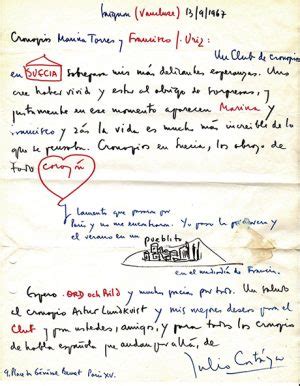 Saignon (Vaucluse) 13/9/1967
Cronopios Marina Torres y Francisco J. Uriz:
Un Club de cronopios
en SUECIA sobrepasa mis más delirantes esperanzas. Uno
cree haber vivido y estar al abrigo de sorpresas, y
justamente en ese momento aparecen Marina y
Francisco y zás la vida es mucho más increíble de lo
que se pensaba. Cronopios en Suecia, los abrazo de
todo corazón
y lamento que pasaran por
París y no me encontraran. Yo paso la primavera y
el verano en un pueblito
en el mediodía de Francia.
Espero ORD och Bild y muchas gracias por todo. Un saludo
al cronopio Artur Lundkvist y mis mejores deseos para el
Club y para ustedes, amigos, y para todos los cronopios
de habla española que andan por allá, de
Julio Cortázar
9, Place du Général Beuret Paris XV.